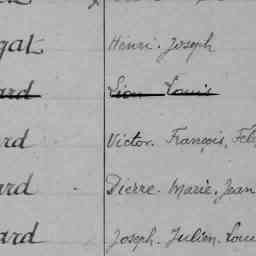 gat Henri. Joseph
ard Léon Louis
ard Victor. François, Fél
ard Pierre. Marie. Jean
ard Joseph. Julien. Loui